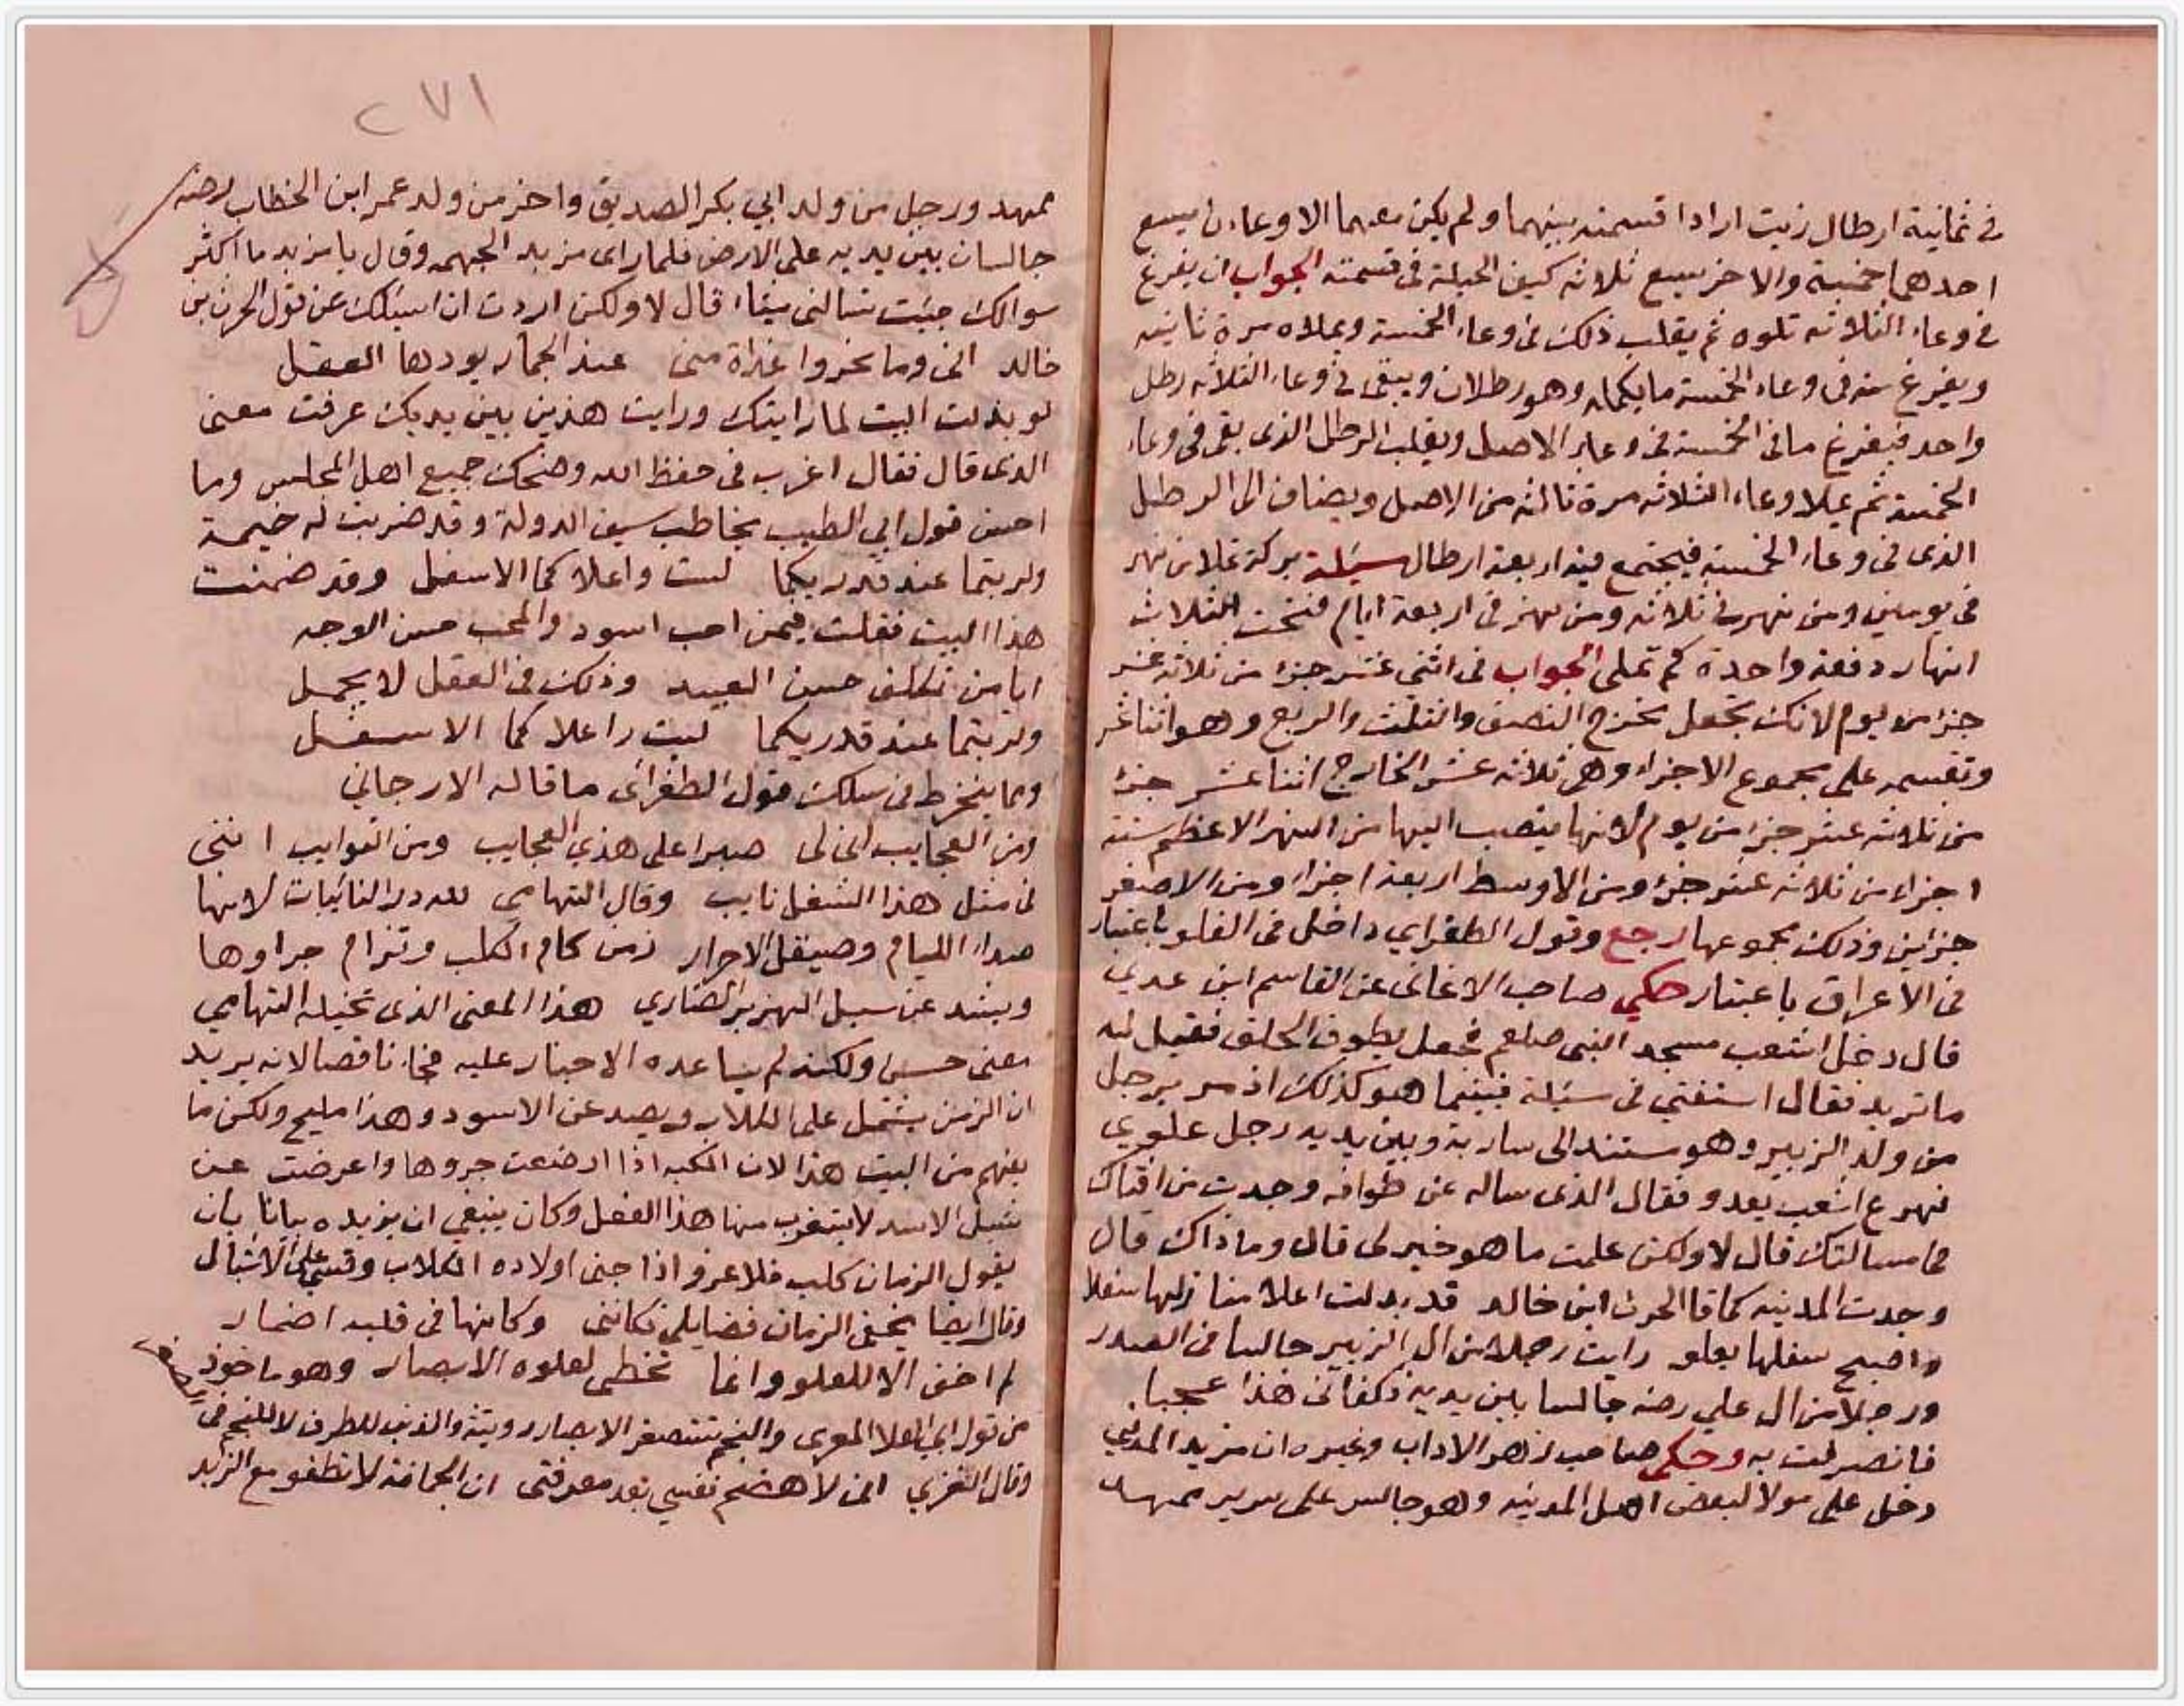 في ثمانية ارطال زيت ارادا قسمته بينهما ولم يكن معهما الا وعاءن يسع
احدهما خمسة والاخر يسع ثلاثه كيف الحيلة فى قسمته الجواب ان يفرغ
في وعاء الثلاثه تلوه ثم يقلب ذلك فى وعاء الخمسة ويملاه مرة ثانيه
ويفرغ منه فى وعاء الخمسة ما يكمله وهو رطلان ويبقى في وعاء الثلاثه رطل
واحد فيفرغ مافى الخمسة فى وعاء الاصل ويقلب الرطل الذى بقى فى وعاء
الخمسة ثم يملا وعاء الثلاثه مرة ثالثه من الاصل ويضاف الى الرطل
الذى فى وعاء الخمسة فيجتمع فيه اربعة ارطال سئلة بركة تملا من نهر
فى يومين ومن نهر في ثلاثه ومن نهر فى اربعة ايام فتحت الثلاث
انهار دفعة واحدة كم تملى الجواب فى اثنى عشر جزء من ثلاثه عشر
جزء من يوم لانك تجعل مخرج النصف والثلث والربع وهو اثنا عشر
وتقسمه على مجموع الاجزاء وهى ثلاثه عشر الخارج اثنا عشر جزء
من ثلاثه عشر جزء من يوم لانها ينصب اليها من النهر الاعظم ستة
اجزاء من ثلاثه عشر جزء ومن الاوسط اربعة اجزاء ومن الاصغر
جزاين وذلك مجموعها رجع وقول الطغراي داخل فى الغلو باعتبار
فى الاعراق باعتبار حكي صاحب الاغانى عن القاسم ابن عدي
قال دخل اشعب مسجد النبى صلعم فجعل يطوف الحلق فقيل له
ما تريد فقال استفتي فى سئلة فبينما هو كذلك اذ مر برجل
من ولد الزبير وهو مستند الى سارية وبين يديه رجل علوي
فهرع اشعب يعدو فقال الذى ساله عن طوافه وجدت من افتاك
فى مسالتك قال لا ولكن علمت ما هو خير لى قال وما ذاك قال
وجدت المدنيه كما قا الحرث ابن خالد قد بدلت اعلا منازلها سفلا
واصبح سفلها يعلو رايت رجلا من ال الزبير جالسا فى الصدر
ورجلا من ال علي رضه جالسا بين يديه فكفانى هذا عجبا
فانصرفت به وحكى صاحب زهر الاداب وغيره ان مزيد المدني
دخل على مولا لبعض اهل المدينه وهو جالس على سرير ممهد
٢٧١
ممهد ورجل من ولد ابي بكر الصديق واخر من ولد عمر ابن الخطاب رضه
جالسان بين يديه على الارض فلما راى مزيد الجهمه وقال يا مزيد ما اكثر
سوالك جيت تسالنى شيئا قال لا ولكن اردت ان اسيلك عن قول الحرث بن
خالد انى وما نحروا غداة منى عند الجمار يودها العقل
لو بدلت البيت لما رايتك ورايت هذين بين يديك عرفت معنى
الذى قال فقال اغرب فى حفظ الله وضحك جميع اهل المجلس وما
احسن قول ابي الطيب يخاطب سيف الدولة وقد ضربت له خيمة
ولربتما عند قدريكما لبت واعلاكما الاسفل وقد ضمنت
هذا البيت فقلت فيمن احب اسود والمحب حسن الوجه
ايا من تكلف حسن العبيد وذلك فى العقل لا يجمل
ولربتما عند قدريكما لبت واعلاكما الاسفل
ومما ينخرط فى سلك قول الطغراى ما قاله الارجاني
ومن العجايب انى لى صبرا على هذى العجايب ومن النوايب اننى
فى مثل هذا الشغل نايب وقال التهامي لله در النائبات لانها
صداء الليام وصيقل الاحرار زمن كام الكلب ترام جراوها
ويشد عن سبل الهزبر الضاري هذا المعنى الذى تخيله التهامي
معنى حسن ولكنه لم يساعده الاختار عليه فجاء ناقصا لانه يريد
ان الزمن يشتمل على الكلاب ويصد عن الاسود وهذا مليح ولكن ما
يفهم من البيت هذا لان الكلبه اذا ارضعت جروها واعرضت عن
شبل الاسد لا يستغرب منها هذا الفعل وكان ينبغي ان يزيده بيانا بان
يقول الزمان كلب فلا غرو اذا جنى اولاده الكلاب وقسى على الاشبال
وقال ايضا يخفى الزمان فضايلى فكاننى وكانها فى قلبه اضمار
لم اخف الا للعلو وانما تخطى لعلوه الابصار وهو ماخوذ
من قول ابي العلا المعرى والنجم تستصغر الابصار رويته والذنب للطرف لا للنجم فى
وقال الغزي انى لاهضم نفسي بعد معرفتى ان الجمانة لا تطفو مع الزبد